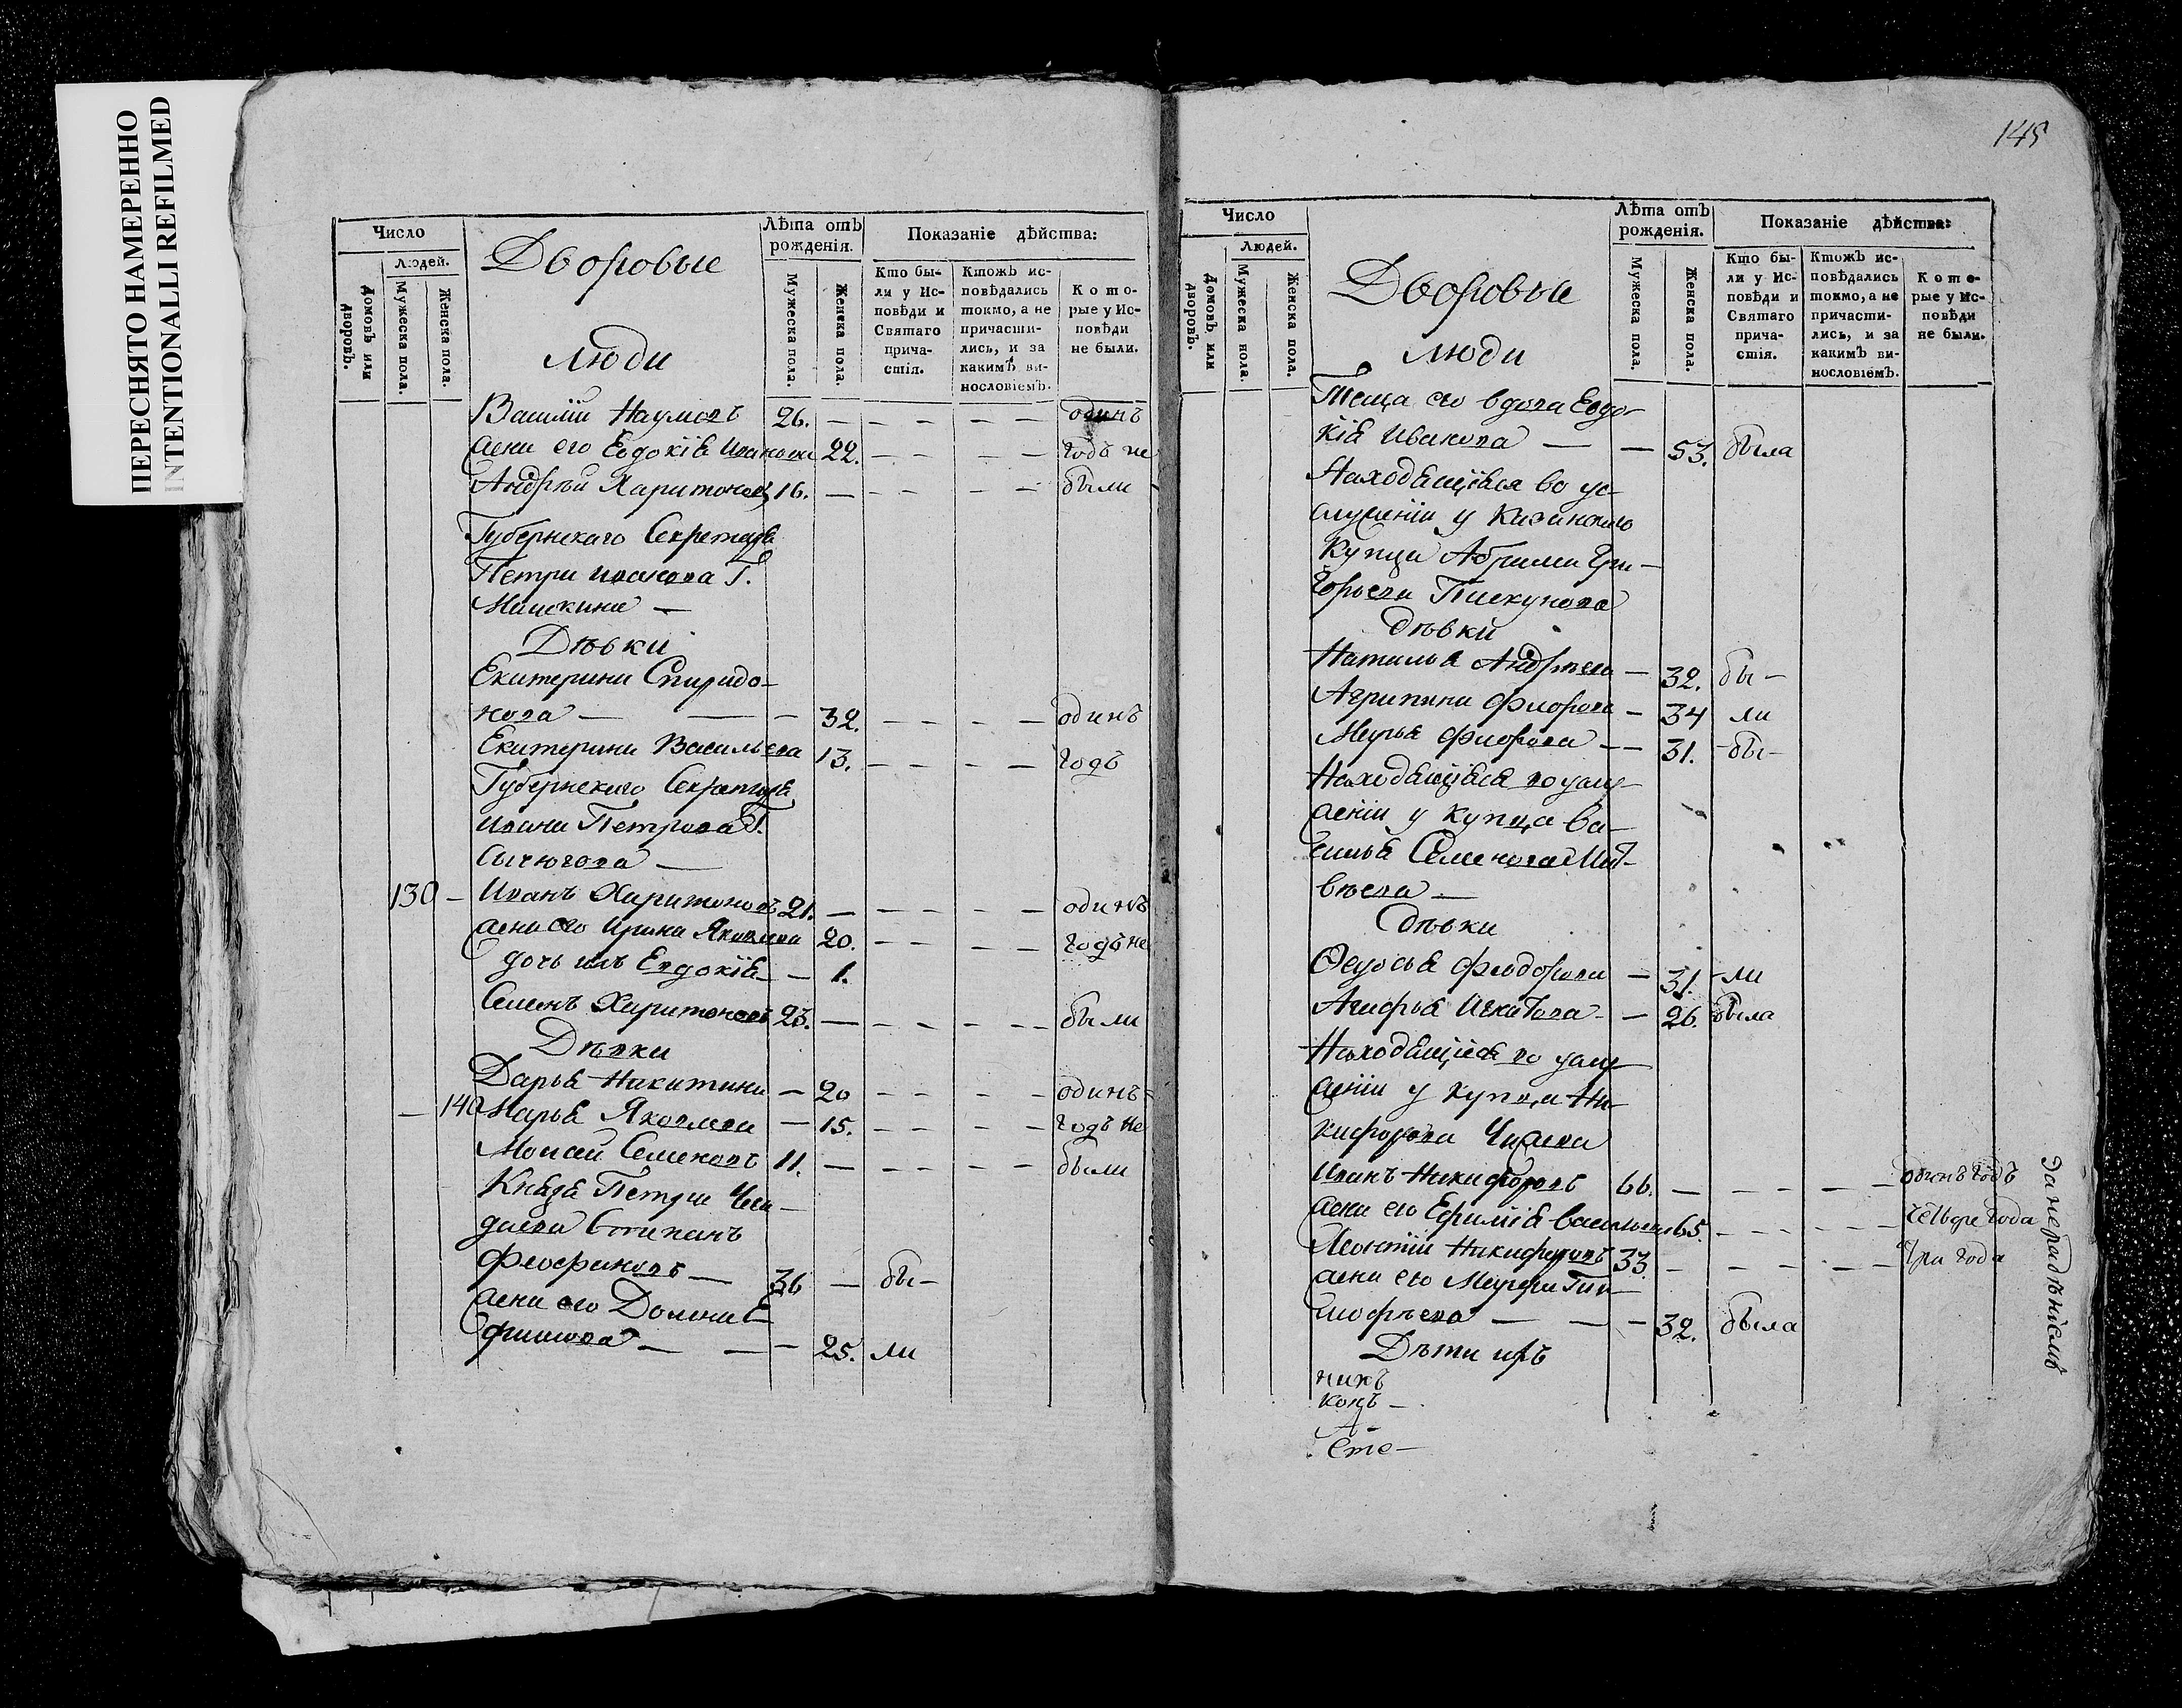 ПЕРЕСНЯТО НАМЕРЕННО
INTENTIONALLI REFILMED
Число
Людей.
Домовъ или дворовъ.
Мужеска пола.
Женска пола.
Дворовые
люди
Лѣта отъ рожденія.
Мужеска пола.
Женска пола.
Показаніе дѣйства:
Кто были у Исповѣди и Святаго причастія.
Ктожъ исповѣдались токмо, а не причастились, и за какимъ винословіемъ.
Которые у Исповѣди не были.
Василій Наумовъ 26. — — — — — одинъ
жена его Евдокіѣ Иванова 22. — — — — годъ не
Андрѣй Харитоновъ 16. — — — — — были
Губернскаго Секретарѣ
Петра Иванова Г.
Машкина —
Дѣвки
Екатерина Спиридо-
нова — — — 32. — — — — одинъ
Екатерина Васильева 13. — — — — годъ
Губернскаго Секретарѣ
Ивана Петрова Г.
Сычюгова —
130 — Иванъ Харитоновъ 21. — — — — — одинъ
жена его Ирина Яковлева 20. — — — — годъ не
дочь ихъ Евдокіѣ — — 1.
Семенъ Харитоновъ 23. — — — — — были
Дѣвки
Дарьѣ Никитина — 20 — — — — одинъ
— 140 Марьѣ Яковлева — 15. — — — — годъ не
Моисей Семеновъ 11. — — — — — были
Князѣ Петра Чега-
даева Степанъ
Феофановъ — 36 — бы-
жена его Домна Е-
фимова — — — 25. ли
145
Число
Людей.
Домовъ или дворовъ.
Мужеска пола.
Женска пола.
Дворовые
люди
Лѣта отъ рожденія.
Мужеска пола.
Женска пола.
Показаніе дѣйства:
Кто были у Исповѣди и Святаго причастія.
Ктожъ исповѣдались токмо, а не причастились, и за какимъ винословіемъ.
Которые у Исповѣди не были.
Теща его вдова Евдо-
кіѣ Иванова — — 53. была
Находѣщіѣся во ус-
луженіи у Казанскаго
Купца Абрама Гри-
горьева Пискунова
дѣвки
Натальѣ Андрѣева — 32. бы-
Агрипина Фиорова — 34 ли
Марьѣ Фиорова — — 31. -бы-
Находѣщіѣсѣ во услу-
женіи у купца Ва-
сильѣ Семенова Мат-
вѣева —
дѣвки
Феодосьѣ Феодорова — 31. -ли
Агафьѣ — 26. была
Находѣщіесѣ во услу-
женіи у купца Ни-
кифорова
Иванъ Никифоровъ 66. — — — — — одинъ годъ
жена его Ефиміѣ Васильева 65. — — — — четыре года
Леонтій Никифоровъ 33. — — — — — три года
жена его Марфа Ти-
мофѣева — — — 32. была
Дѣти ихъ
занерадѣніемъ